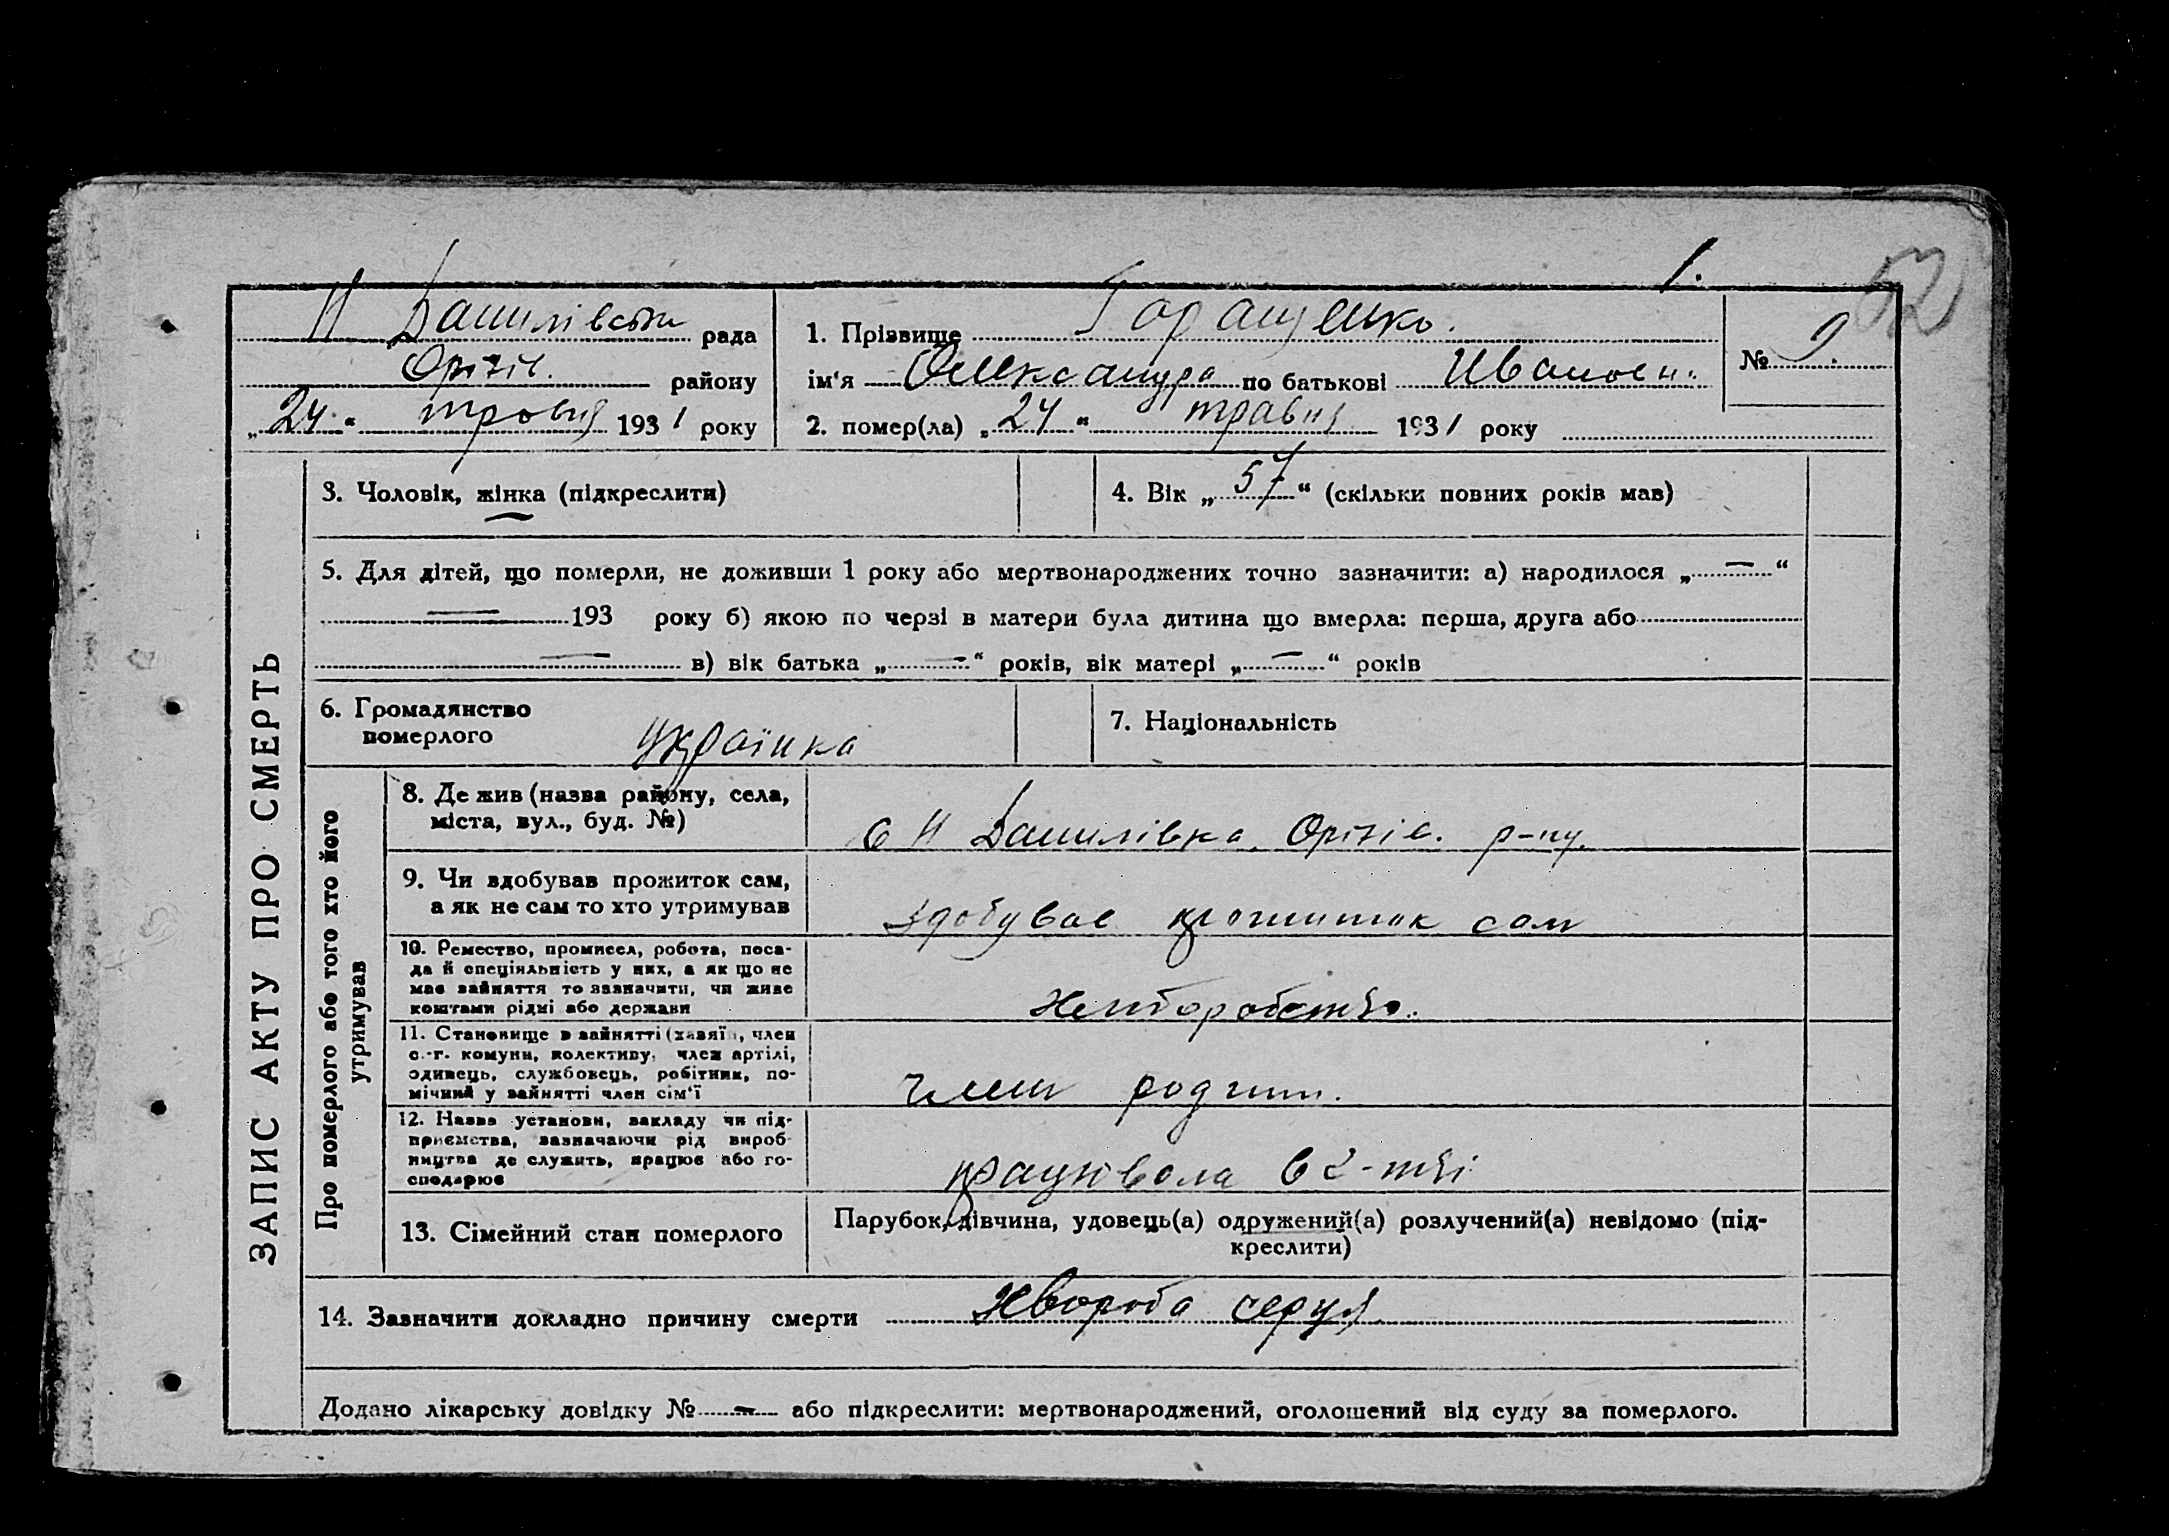 1. 52
Н Данилівська рада
Оріхів. району
„24“ травня 1931 року
1. Прізвище Таращенко.
ім‘я Олександра по батькові Иванівн.
№ 9.
2. помер(ла) „24“ травня 1931 року
ЗАПИС АКТУ ПРО СМЕРТЬ
3. Чоловік, жінка (підкреслити)
4. Вік „57“ (скільки повних років мав)
5. Для дітей, що померли, не доживши 1 року або мертвонароджених точно зазначити: а) народилося „—“
— 193 року б) якою по черзі в матери була дитина що вмерла: перша, друга або
— в) вік батька „—“ років, вік матері „—“ років
6. Громадянство
померлого українка
7. Національність
Про померлого або того хто його
утримував
8. Де жив (назва району, села,
міста, вул., буд. №)
с Н Данилівка. Оріхів. р-ну.
9. Чи здобував прожиток сам,
а як не сам то хто утримував
здобував прожиток сам
10. Ремество, промисел, робота, поса-
да й спеціяльність у них, а як що не
має зайняття то зазначити, чи живе
коштами рідні або держави
Хліборобство.
11. Становище в зайнятті (хазяїн, член
с.-г. комуни, колективу, член артілі,
одинець, службовець, робітник, по-
мічний у зайнятті член сім‘ї
член родини.
12. Назва установи, закладу чи під-
приємства, зазначаючи рід вироб-
ництва де служить, працює або го-
сподарює
працювала в г-тві
13. Сімейний стан померлого
Парубок, дівчина, удовець(а) одружений(а) розлучений(а) невідомо (під-
креслити)
14. Зазначити докладно причину смерти Хвороба серця
Додано лікарську довідку № — або підкреслити: мертвонароджений, оголошений від суду за померлого.